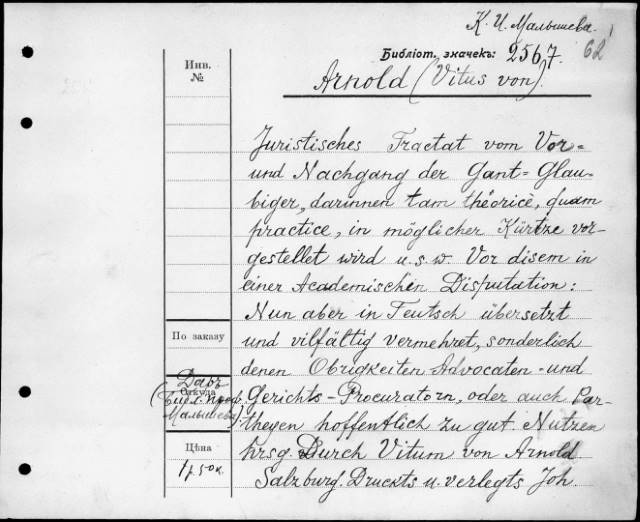 К. И. Малышева.
Библіот. значекъ: 2567. 62
Arnold (Vitus von).
Инв.
№
Juristisches Tractat vom Vor=
und Nachgang der Gant=Glau-
biger, darinnen tam théoricè, quam
practice, in möglicher Kürtze vor-
gestellet wird u.s.w. Vor disem in
einer Academischen Disputation:
Nun aber in Teutsch übersetzt
По заказу
und vilfältig vermehret, sonderlich
denen Obrigkeiten Advocaten-und
Даръ
Откуда
(Библ. проф.
Малышева)
Gerichts-Procuratorn, oder auch Par-
theyen hoffentlich zu gut. Nutzen
Цѣна
1 р. 50 к.
hrsg. Durch Vitum von Arnold
Salzburg. Druckts u. verlegts Joh.